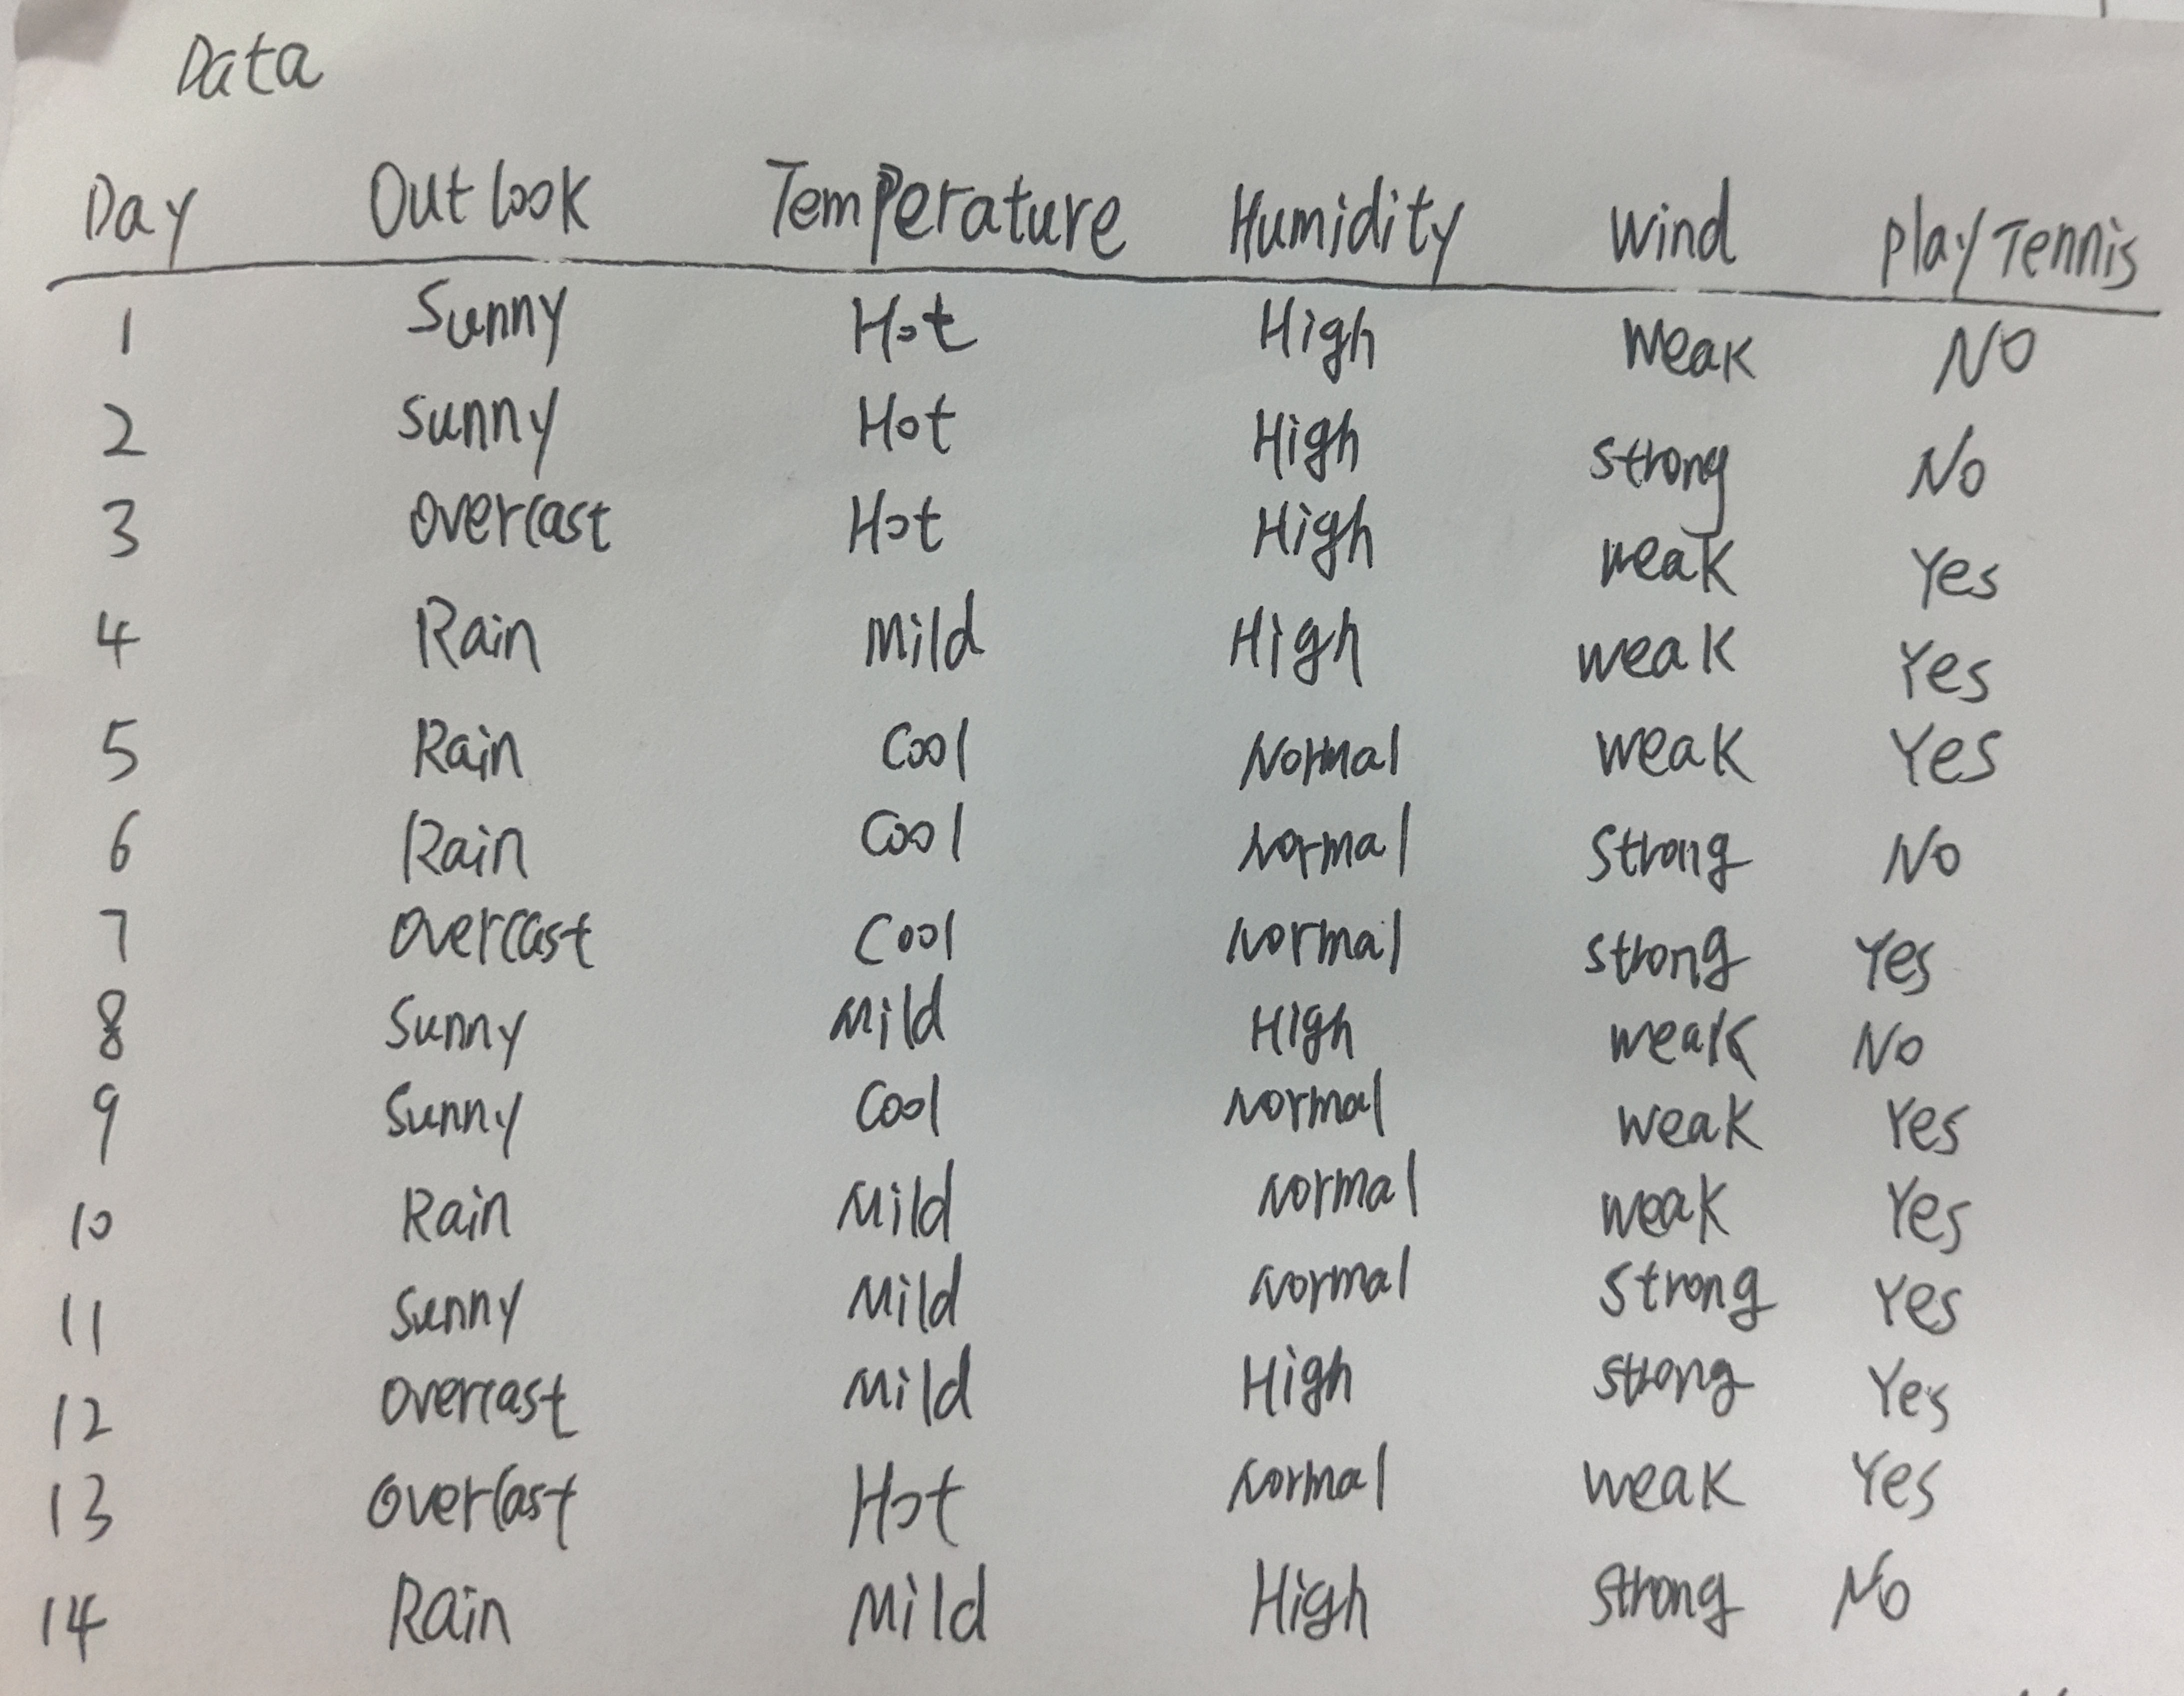 Data
Day Outlook Temperature Humidity Wind Play Tennis
1 Sunny Hot High weak NO
2 Sunny Hot High strong No
3 overcast Hot High weak Yes
4 Rain Mild High weak Yes
5 Rain Cool Normal weak Yes
6 Rain Cool Normal Strong No
7 overcast Cool Normal strong Yes
8 Sunny Mild High weak No
9 Sunny Cool Normal weak Yes
10 Rain Mild Normal weak Yes
11 Sunny Mild Normal Strong Yes
12 overcast Mild High strong Yes
13 overcast Hot Normal weak Yes
14 Rain Mild High strong No